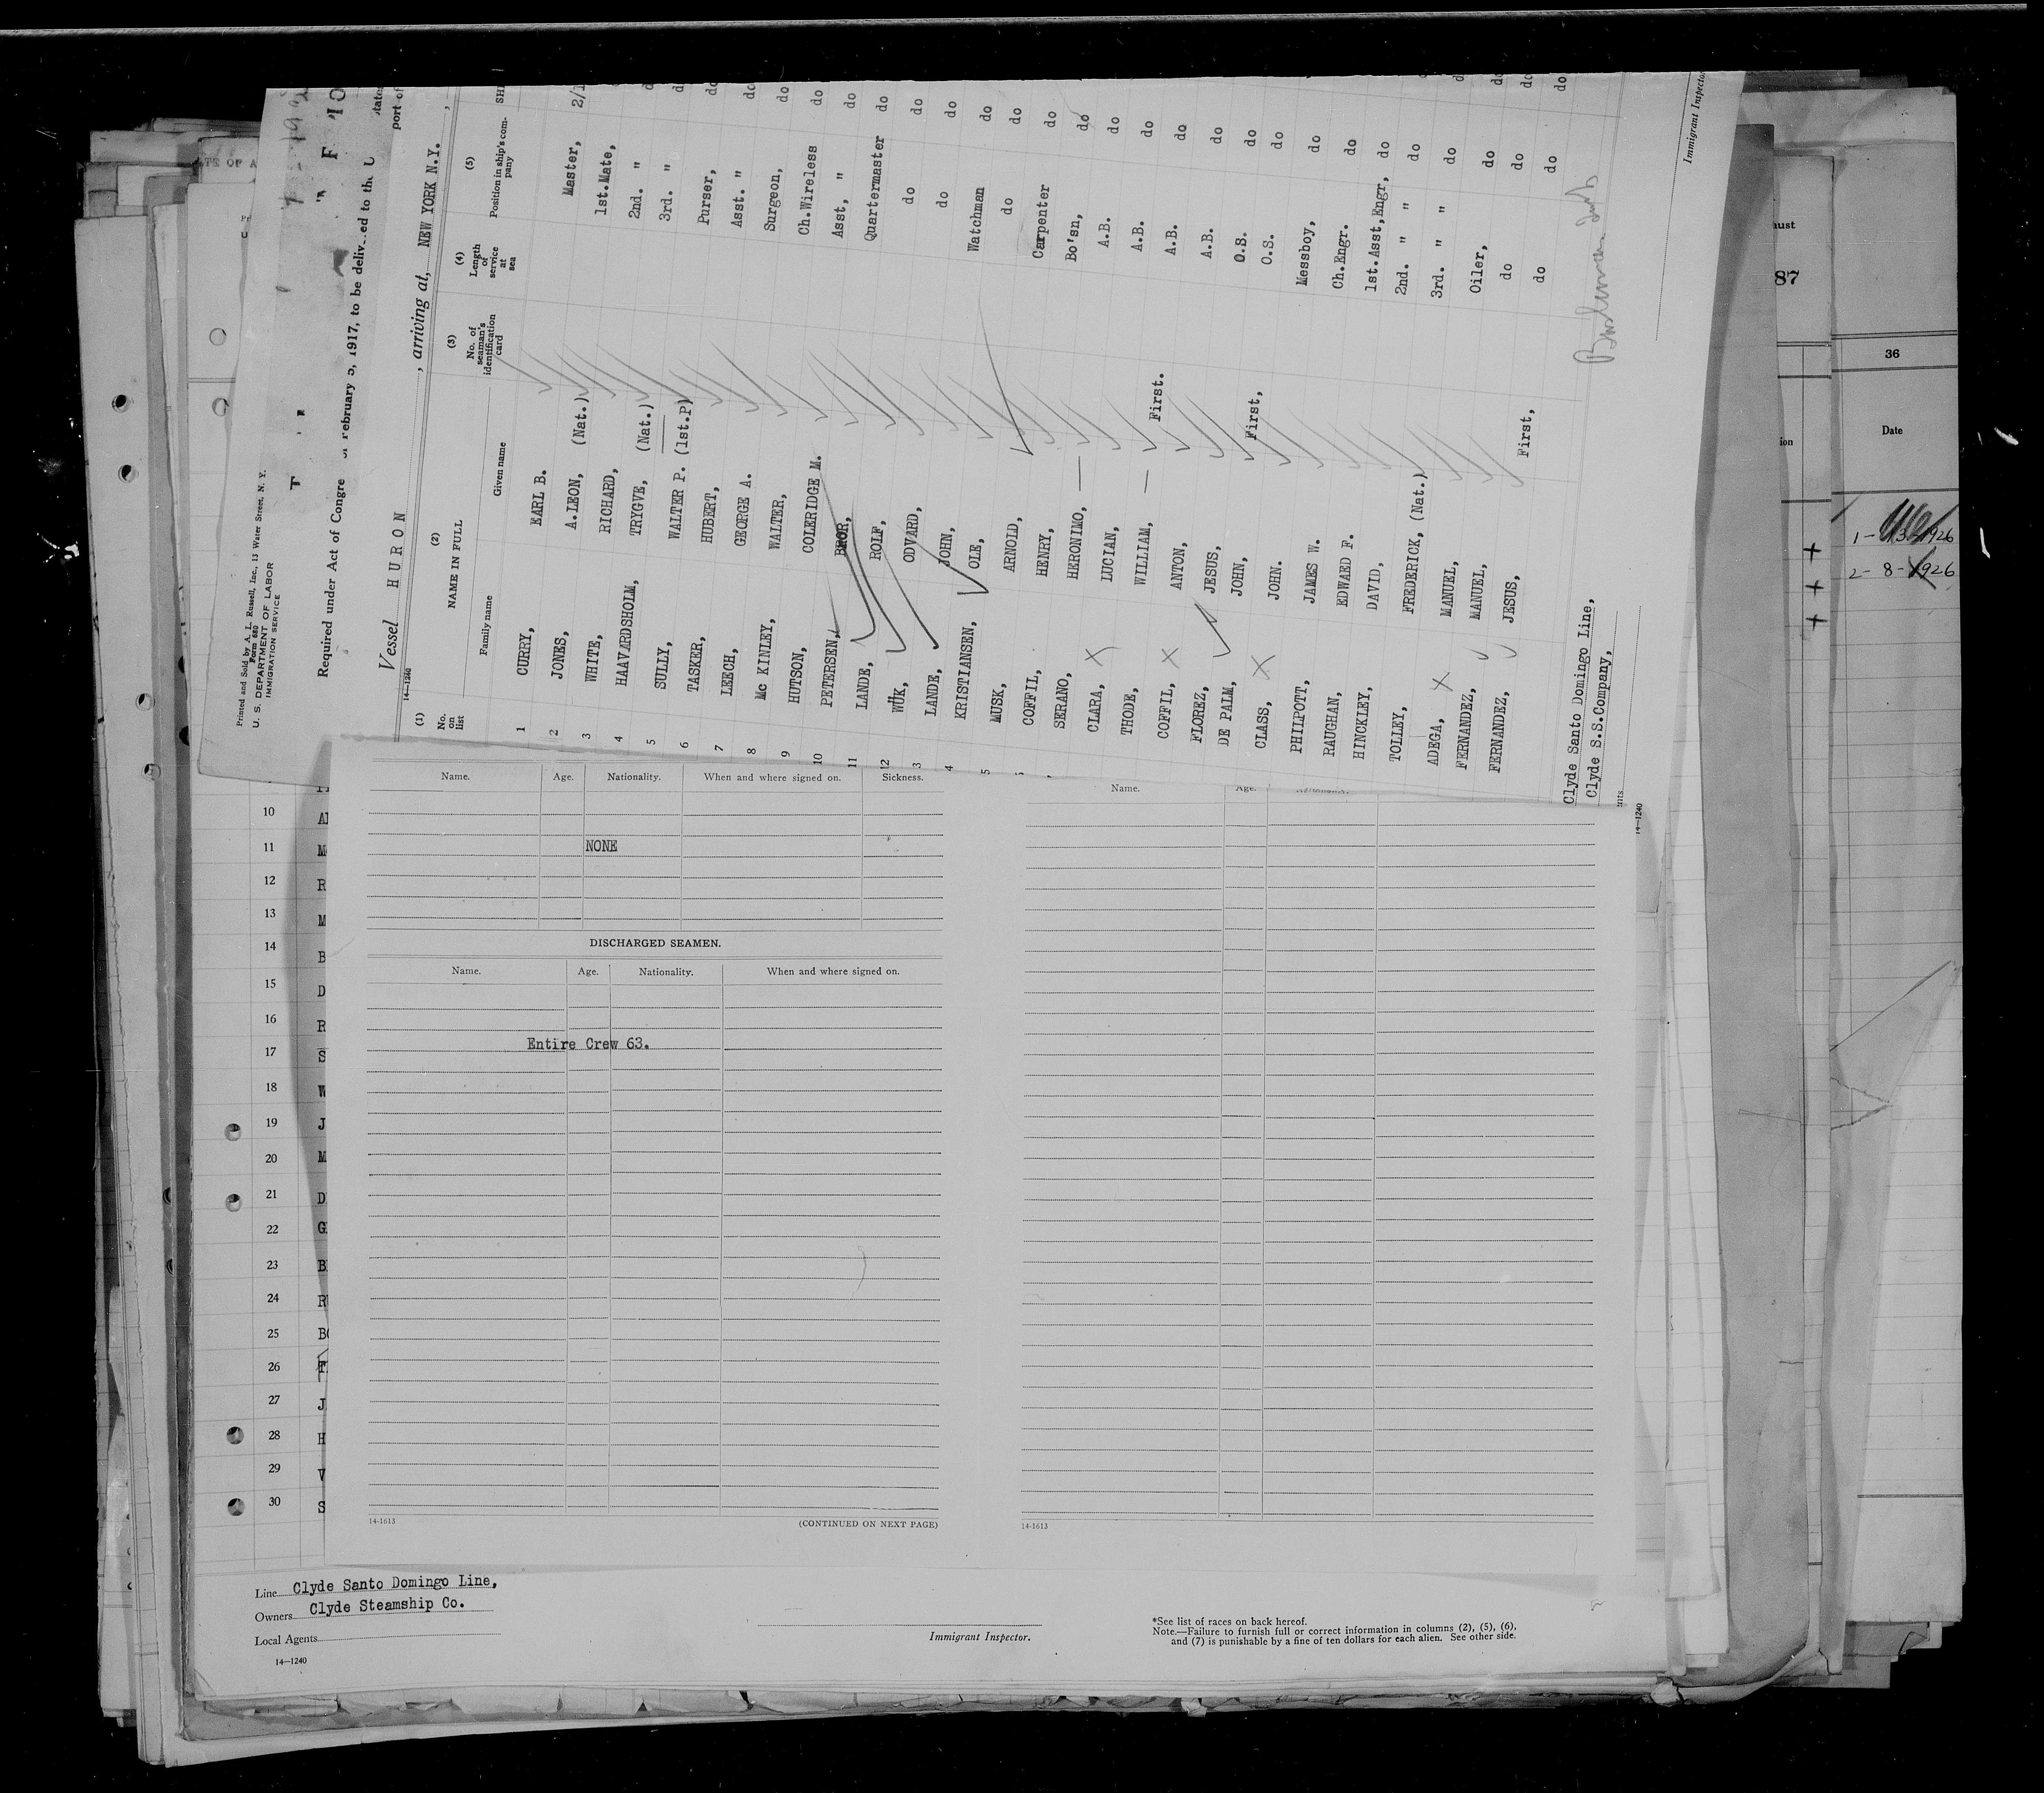 Printed and Sold by A. L. Russell, Inc., 13 Water Street, N. Y.
Form 680
U. S. DEPARTMENT OF LABOR
IMMIGRATION SERVICE
Required under Act of Congre
February 5, 1917, to be delivered to the U
port of
Vessel HURON , arriving at, NEW YORK N.Y. ,
14-1240
(1) No. on list
(2) NAME IN FULL
Family name Given name
(3) No. of seaman's identification card
(4) Length of service at sea
(5) Position in ship's company
1 CURRY, EARL B. Master, 2/1
2 JONES, A.LEON, (Nat.) 1st.Mate,
3 WHITE, RICHARD, 2nd. " d
4 HAAVARDSHOLM, TRYGVE, (Nat.) 3rd. " d
5 SULLY, WALTER P. (1st.P) Purser, do
6 TASKER, HUBERT, Asst. " do
7 LEECH, GEORGE A. Surgeon, do
8 Mc KINLEY, WALTER, Ch.Wireless do
9 HUTSON, COLERIDGE M. Asst, " do
10 PETERSEN, BROR, Quartermaster do
11 LANDE, ROLF, do do
12 WÜK, ODVARD, do do
3 LANDE, JOHN, Watchman do
4 KRISTIANSEN, OLE, do do
5 MUSK, ARNOLD, Carpenter do
COFFIL, HENRY, Bo'sn, do
SERANO, HERONIMO, — A.B. do
CLARA, X LUCIAN, A.B. do
THODE, WILLIAM, — First. A.B. do
COFFIL, X ANTON, A.B. do
FLOREZ, JESUS, O.B. do
DE PALM, JOHN, First, O.S. do
CLASS, X JOHN. Messboy, do
PHILPOTT, JAMES W. Ch.Engr. do
RAUGHAN, EDWARD F. 1st.Asst,Engr, do
HINCKLEY, DAVID, 2nd. " " do
TOLLEY, FREDERICK, (Nat.) 3rd. " " do
ADEGA, X MANUEL, Oiler, do
FERNANDEZ, MANUEL, do do
FERNANDEZ, JESUS, First, do do
Clyde Santo Domingo Line,
Clyde S.S.Company,
Immigrant Inspector
14-1240
87
36
ion
Date
1-13-1926
2-8-1926
Name. Age. Nationality. When and where signed on. Sickness.
NONE
DISCHARGED SEAMEN.
Name. Age. Nationality. When and where signed on.
Entire Crew 63.
14-1613
(CONTINUED ON NEXT PAGE)
Name. Age.
14-1613
10 A
11 M
12 R
13 M
14 B
15 D
16 R
17 S
18 W
19 J
20 M
21 D
22 G
23 B
24 R
25 BO
26 F
27 J
28 H
29 V
30 S
Line Clyde Santo Domingo Line,
Owners Clyde Steamship Co.
Local Agents
14-1240
Immigrant Inspector.
*See list of races on back hereof.
Note.—Failure to furnish full or correct information in columns (2), (5), (6),
and (7) is punishable by a fine of ten dollars for each alien. See other side.